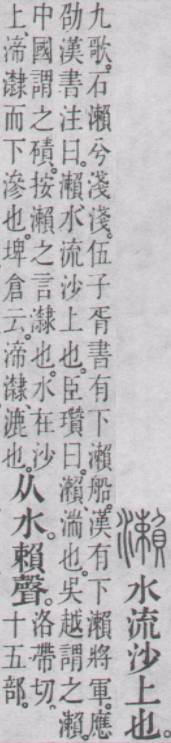 瀨 水流沙上也。
九歌。石瀨兮淺淺。伍子胥書有下瀨船。漢有下瀨將軍。應
劭漢書注曰。瀨、水流沙上也。臣瓚曰。瀨、湍也。吳越謂之瀨。
中國謂之磧。按瀨之言也。水在沙
上、渧而下滲也。埤倉云。渧、漉也。
从水。賴聲。
洛帶切、
十五部。